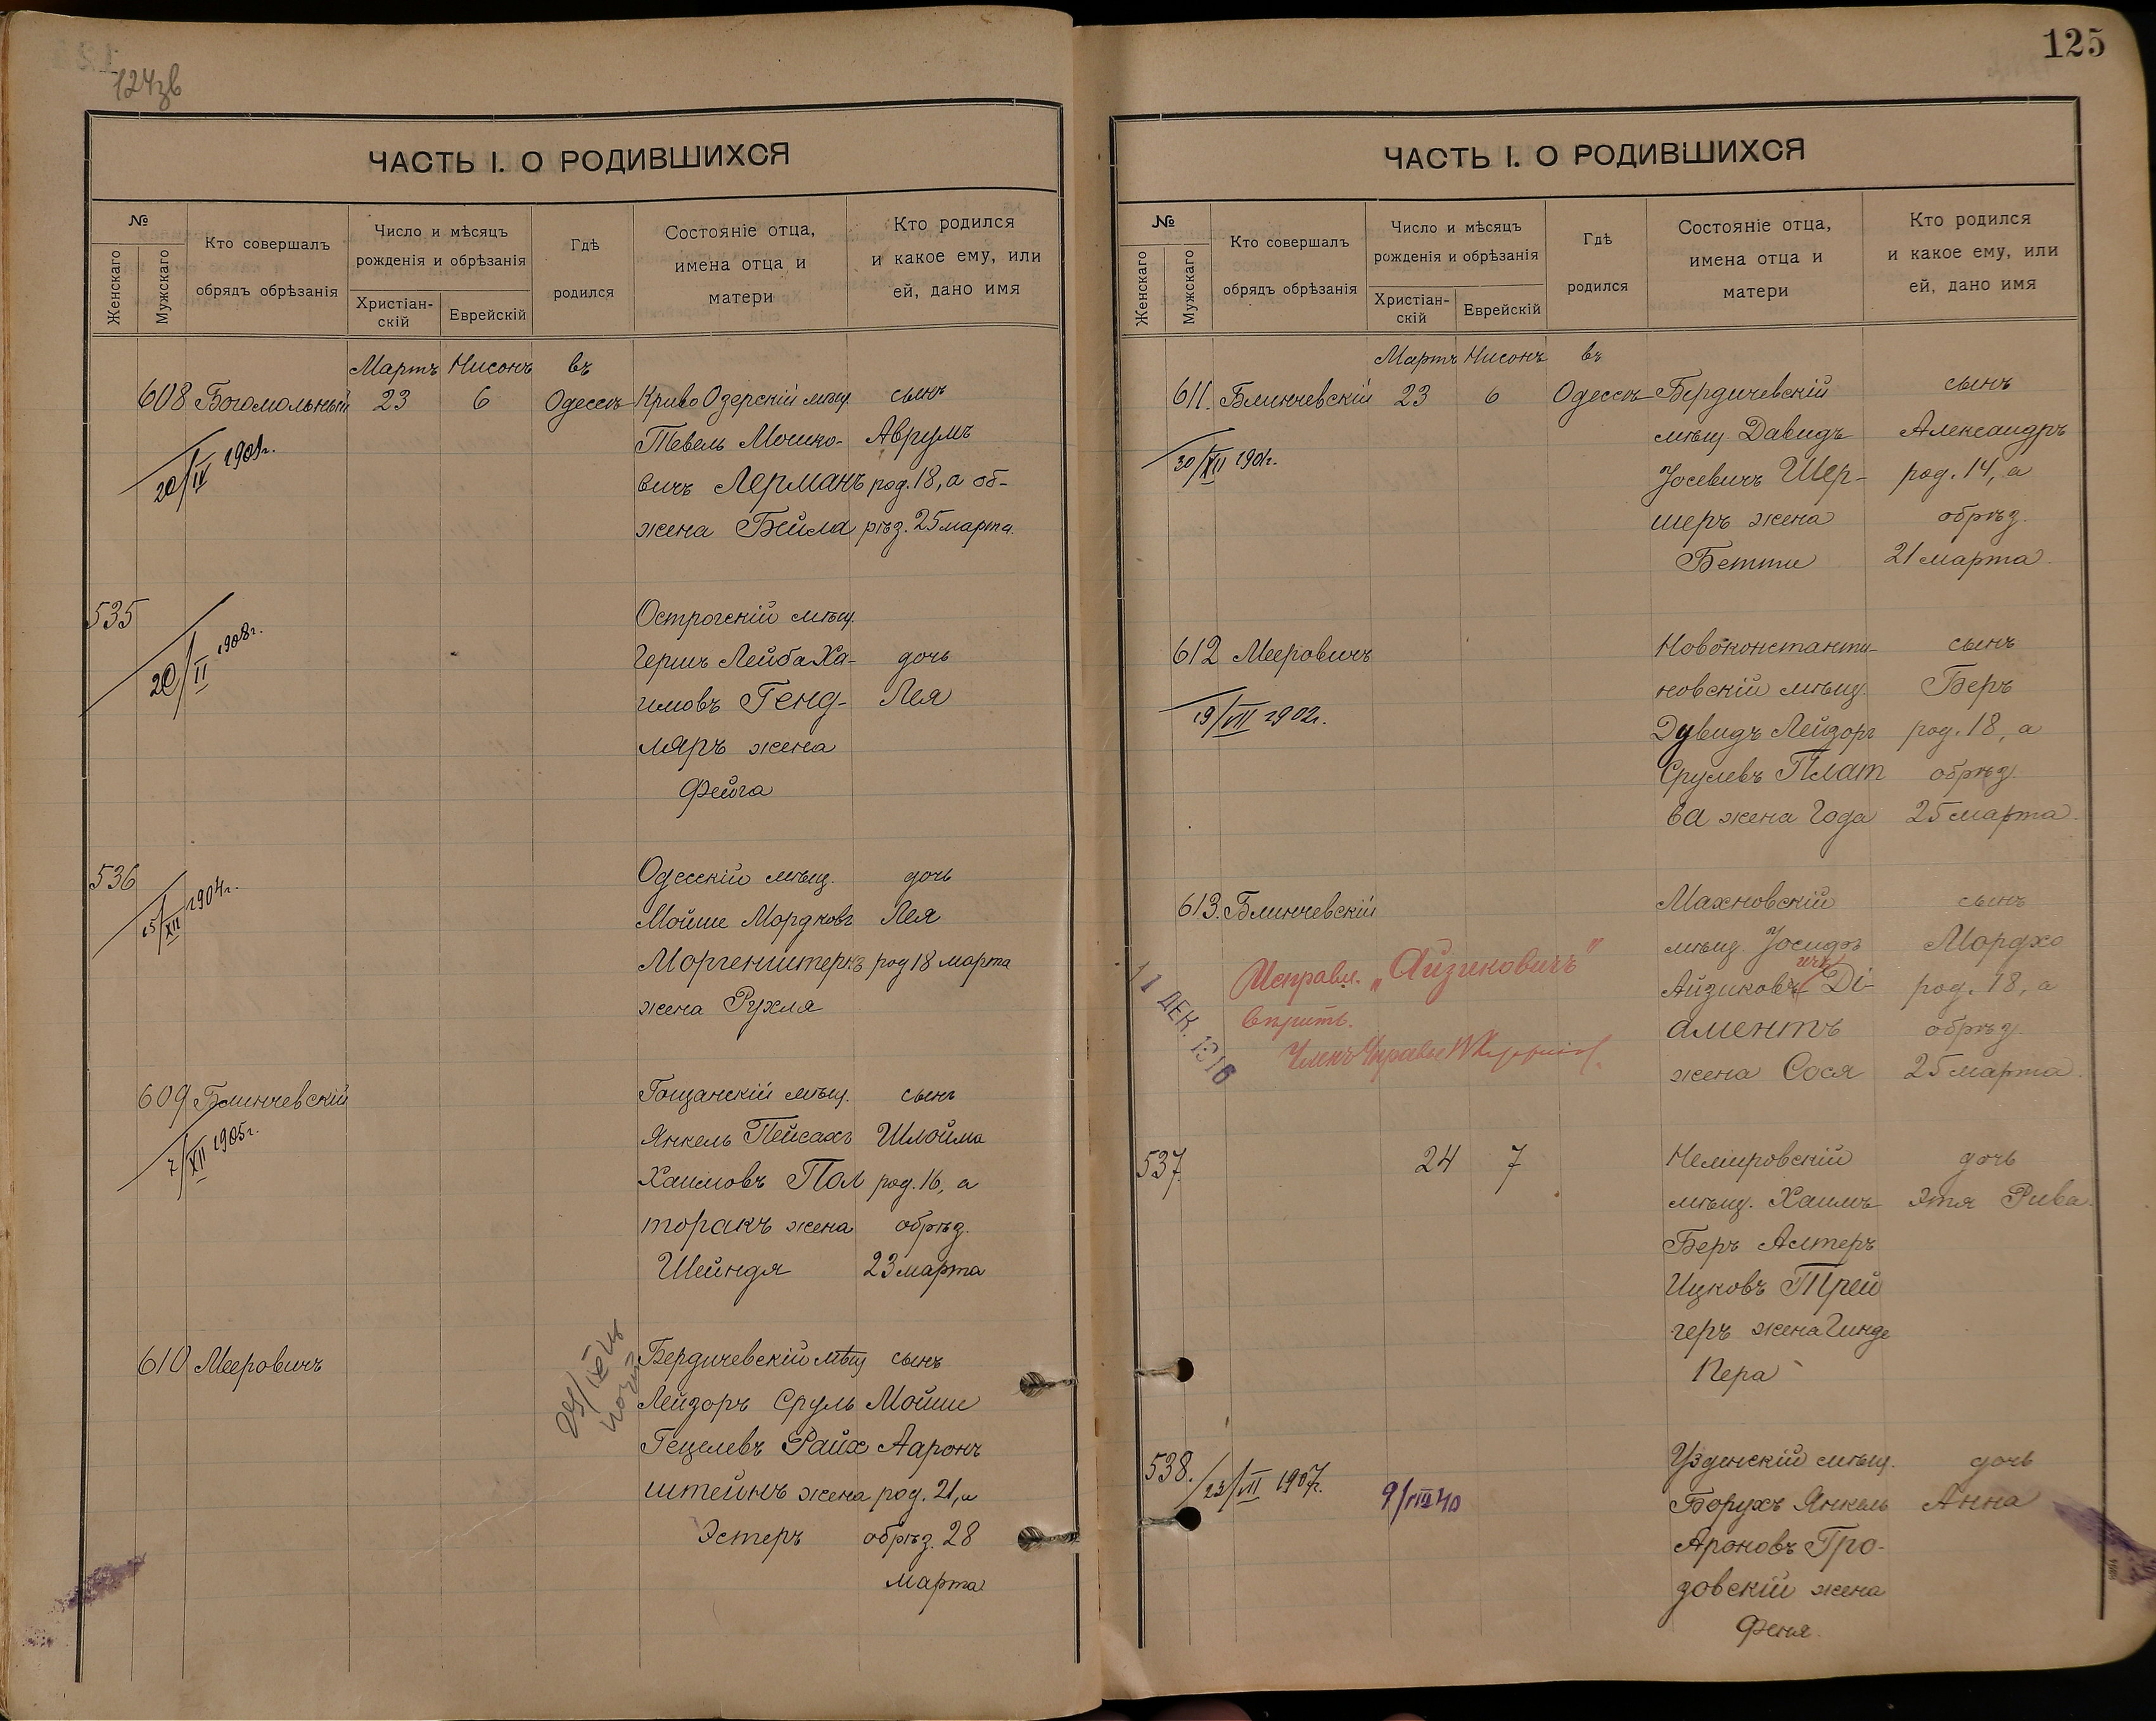 124зв
ЧАСТЬ I. О РОДИВШИХСЯ
№
Женскаго
Мужскаго
Кто совершалъ
обрядъ обрѣзанія
Число и мѣсяцъ
рожденія и обрѣзанія
Христіан-
скій
Еврейскій
Гдѣ
родился
Состояніе отца,
имена отца и
матери
Кто родился
и какое ему, или
ей, дано имя
Мартъ Нисонъ въ
608 Богомольный 23 6 Одессѣ Криво Озерскій мѣщ. сынъ
Тевель Мошко- Аврумъ
20/IV 1901г.
вичъ Лерманъ род. 18, а об-
жена Бейла рѣз. 25 марта.
535 Острогскій мѣщ.
20/II 1908г.
Гершъ Лейба Ха- дочь
имовъ Генд- Лея
ляръ жена
Фейга
536 Одесскій мѣщ. дочь
15/XII 1904г.
Мойше Мордковъ Лея
Моргенштернъ род 18 марта
жена Рухля
609 Блинчевскій Гощанскій мѣщ. сынъ
7/XII 1905г.
Янкель Пейсахъ Шлойма
Хаимовъ Пол род. 16, а
торакъ жена обрѣз.
Шейндя 23 марта
610 Мееровичъ Бердичевскій мѣщ сынъ
Лейзоръ Сруль Мойше
Гецелевъ Райх Ааронъ
штейнъ жена род. 21, а
Эстеръ обрѣз. 28
марта
125
ЧАСТЬ I. О РОДИВШИХСЯ
№
Женскаго
Мужскаго
Кто совершалъ
обрядъ обрѣзанія
Число и мѣсяцъ
рожденія и обрѣзанія
Христіан-
скій
Еврейскій
Гдѣ
родился
Состояніе отца,
имена отца и
матери
Кто родился
и какое ему, или
ей, дано имя
Мартъ Нисонъ въ
611. Блинчевскій 23 6 Одессѣ Бердичевскій сынъ
мѣщ. Давидъ Александръ
30/XII 1901г.
Іосевичъ Шер- род. 14, а
шеръ жена обрѣз.
Бетти 21 марта.
612 Мееровичъ Новоконстанти- сынъ
новскій мѣщ. Беръ
19/VII 1902г.
Дувидъ Лейзоръ род. 18, а
Срулевъ Плат обрѣз.
ва жена Года 25 марта.
613. Блинчевскій Махновскій сынъ
мѣщ. Іосифъ Мордхо
Исправл. „Айзиковичъ"
ичъ
Айзиковъ Ді- род. 18, а
вѣрить.
11 ДЕК. 1916
аментъ обрѣз
Членъ Управы
жена Сося 25 марта.
537. 24 7 Немировскій дочь
мѣщ. Хаимъ Этя Рива.
Беръ Алтеръ
Ицковъ Трей
геръ жена Гинде
Пера
538. 23/VII 1907г. 9/VIII 40 Узденскій мѣщ. дочь
Борухъ Янкель Анна
Ароновъ Гро-
зовскій жена
Феня.